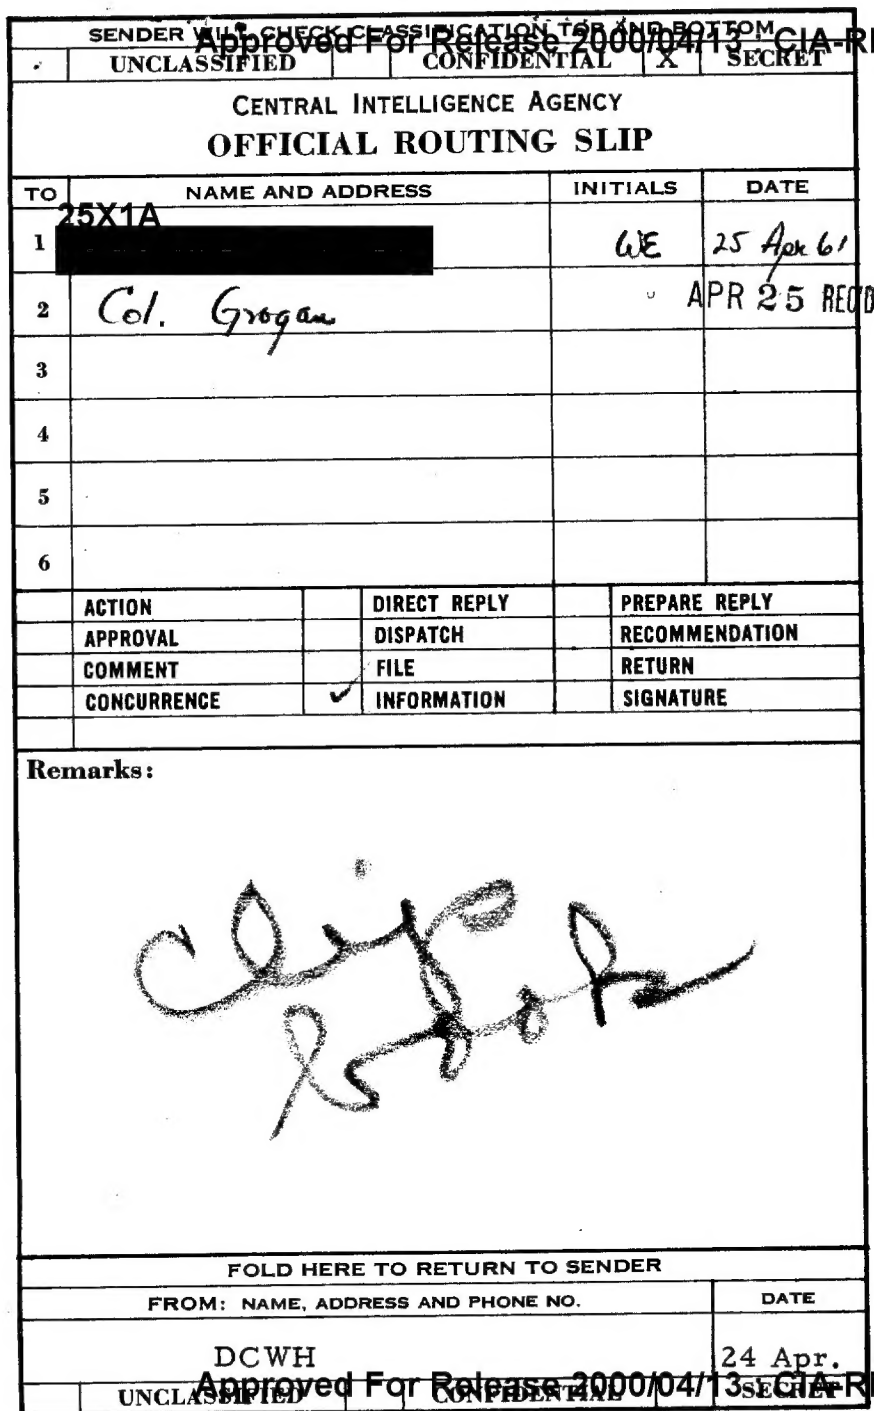 SENDER WILL CHECK CLASSIFICATION TOP AND BOTTOM
Approved For Release 2000/04/13 : CIA-R
UNCLASSIFIED CONFIDENTIAL X SECRET
CENTRAL INTELLIGENCE AGENCY
OFFICIAL ROUTING SLIP
TO NAME AND ADDRESS INITIALS DATE
25X1A
1 WE 25 Apr 61
2 Col. Grogan APR 25 REC'D
3
4
5
6
ACTION DIRECT REPLY PREPARE REPLY
APPROVAL DISPATCH RECOMMENDATION
COMMENT FILE RETURN
CONCURRENCE ✓ INFORMATION SIGNATURE
Remarks:
Clip
Book
FOLD HERE TO RETURN TO SENDER
FROM: NAME, ADDRESS AND PHONE NO. DATE
DCWH 24 Apr.
Approved For Release 2000/04/13 : CIA-R
UNCLASSIFIED CONFIDENTIAL SECRET